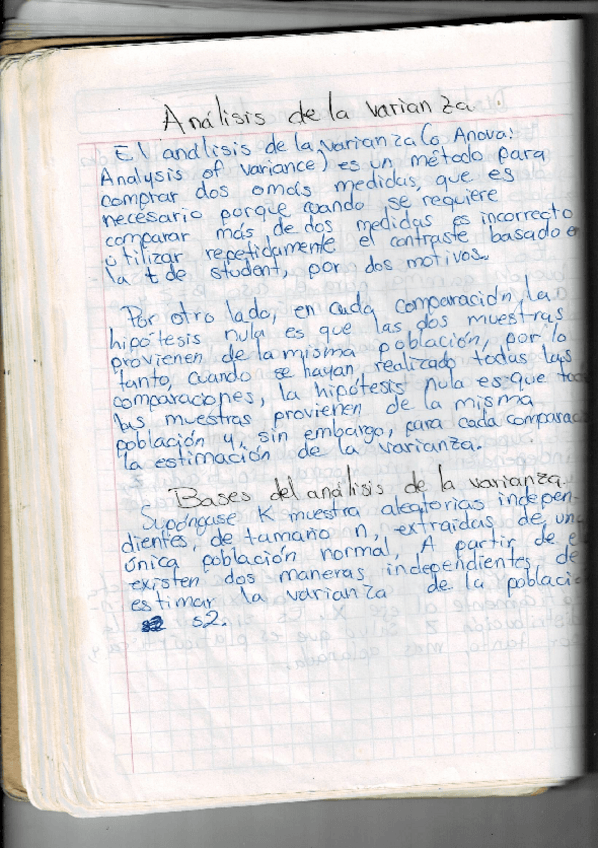 Análisis de la varianza
El análisis de la varianza (o Anova:
Analysis of variance) es un método para
comprar dos o más medidas, que es
necesario porque cuando se requiere
comparar más de dos medidas es incorrecto
utilizar repetidamente el contraste basado e
la t de student, por dos motivos.
Por otro lado, en cada comparación, la
hipótesis nula es que las dos muestras
provienen de la misma población, por lo
tanto, cuando se hayan, realizado todas las
comparaciones, la hipótesis nula es que
las muestras provienen de la misma
población y, sin embargo, para cada comparac
la estimación de la varianza.
Bases del análisis de la varianza.
Supóngase K muestra aleatorias indepen-
dientes, de tamaño n, extraidas de una
única población normal, A partir de e
existen dos maneras independientes de
estimar la varianza de la poblaci
s2.